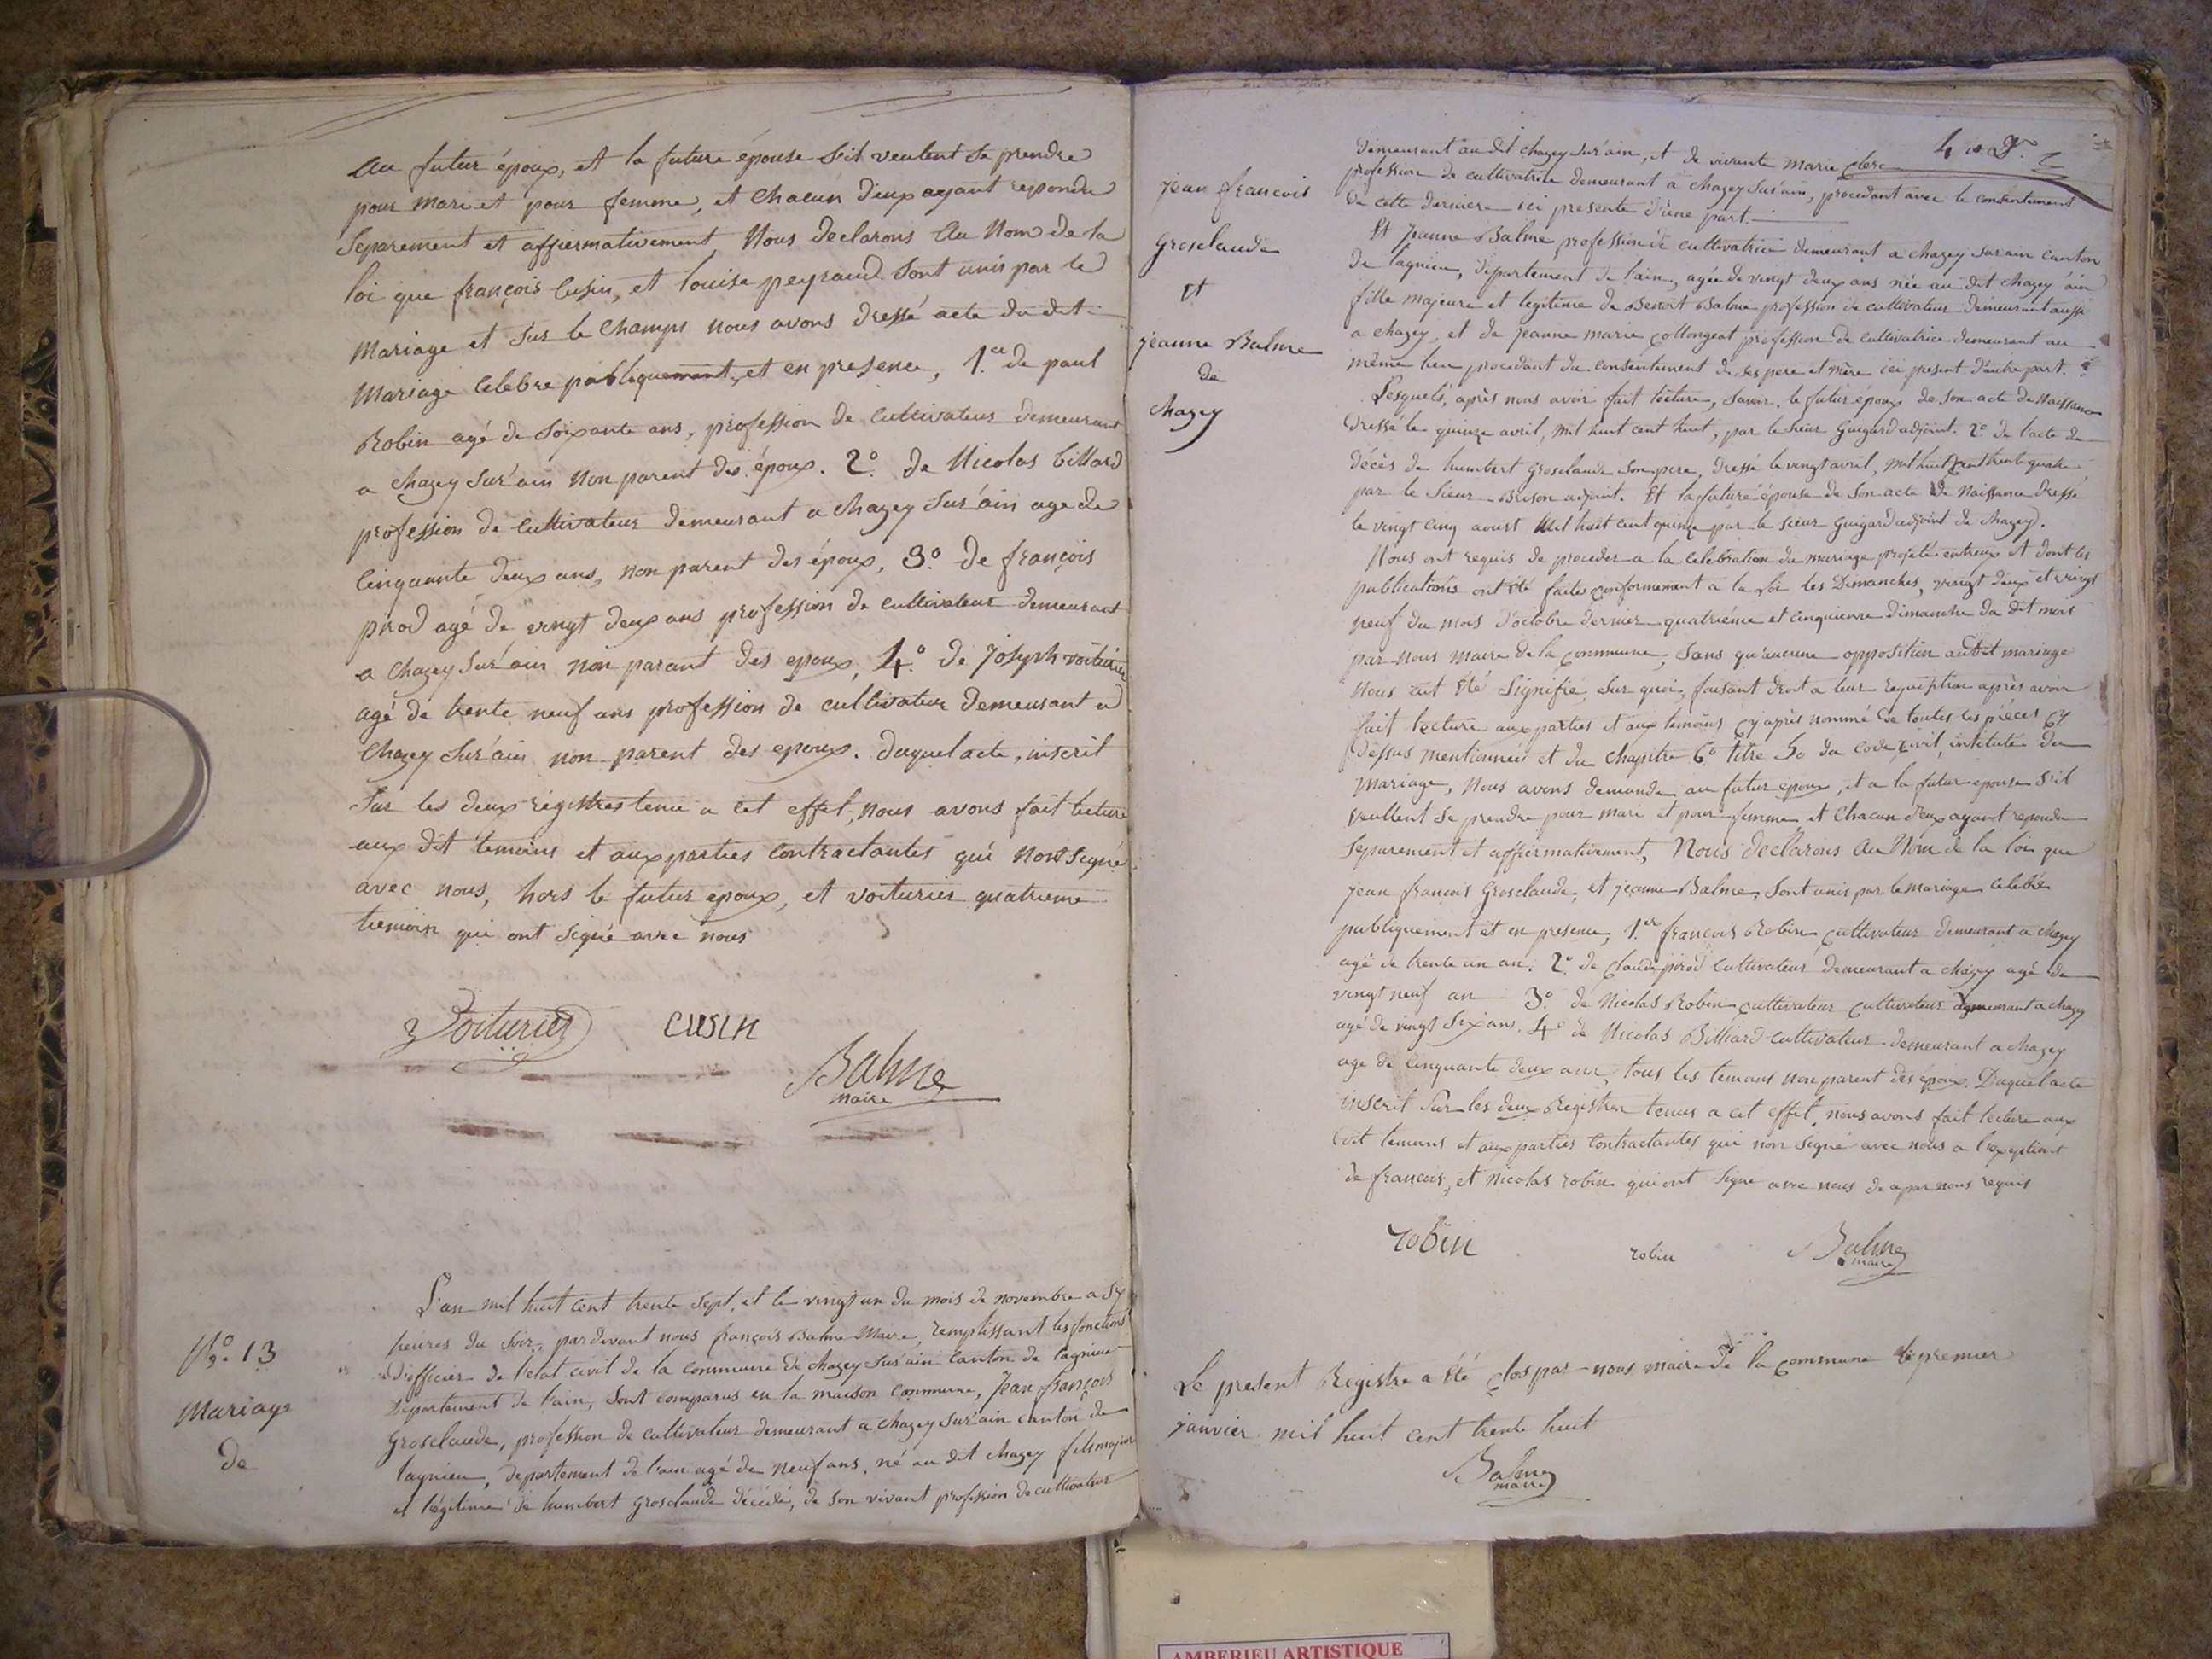 au futur époux, et la future épouse s'il veulent se prendre
pour mari et pour femme, et chacun d'eux ayant repondu
Separement et affiermativement, Nous declarons Au Nom de la
loi que françois Cusin, et louise peyraud Sont unis par le
Mariage et Sur le Champs nous avons dressé acte du dit
Mariage celebre publiquement, et en presence, 1.er de paul
Robin agé de Soixante ans, profession de cultivateur demeurant
a chazey Sur ain Non parent des époux. 2.º de Nicolas billard
profession de Cultivateur demeurant a chazey Sur ain age de
Cinquante deux ans, non parent des époux, 3.º de françois
prod agé de vingt deux ans profession de cultivateur demeurant
a chazey Sur ain non parant des epoux, 4.º de Joseph voiturier
agé de trente neuf ans profession de cultivateur demeurant a
Chazey Sur ain non parent des epoux. duquel acte, inscrit
Sur les deux registres tenu a cet effet, nous avons fait lecture
aux dit temoins et aux parties Contractantes qui Nont Signé
avec nous, hors le futur epoux, et voiturier quatrieme
temoin qui ont signé avec nous
Voiturier CUSIN
Balme
maire
N.º 13
Mariage
de
L'an mil huit cent trente Sept, et le vingt un du mois de novembre a Six
heures du Soir, pardevant nous françois Balme Maire, remplissant les fonctions
d'officier de l'etat civil de la commune de chazey Sur ain Canton de lagnieu
Département de l'ain, Sont comparus en la maison Commune, Jean françois
Grosclaude, profession de cultivateur demeurant a chazey Sur ain canton de
lagnieu, departement de l'ain agé de neuf ans, né au dit chazey fils majeur
et légitime de humbert Grosclaude décédé, de Son vivant profession de cultivateur
4 e
jean francois
Grosclaude
et
jeanne Balme
de
chazey
demeurant au dit chazey Sur ain, et de vivante Marie Clerc
profession de cultivatrice demeurant a Chazey Sur ain, procedant avec le consentement
de cette derniere ici presente d'une part.
Et Jeanne Balme profession de cultivatrice demeurant a chazey Sur ain Canton
de lagnieu, departement de l'ain, agée de vingt deux ans née au dit chazey ain
fille majeure et legitime de Benoit Balme profession de cultivateur demeurant aussi
a chazey, et de Jeanne marie Collongeat profession de cultivatrice demeurant au
même lieu procedant du consentement de Ses pere et mère ici present d'autre part.
Lesquels, après nous avoir fait lecture, Savoir, le futur époux de Son acte de Naissance
Dressé le quinze avril, mil huit cent huit, par le Sieur Guigard adjoint. 2.º de l'acte de
décès de humbert Grosclaude Son pere, dressé le vingt avril, mil huit cent trente quatre
par le Sieur Brison adjoint. Et la future épouse de Son acte de Naissance dressé
le vingt Cinq aoust Mil huit cent quinze par le Sieur Guigard adjoint de Chazey.
Nous ont requis de proceder a la Celebration du mariage projeté entreux et dont les
publications ont été faites Conformement a la Loi les Dimanches, vingt deux et vingt
neuf du mois d'octobre dernier quatriéme et Cinquieme dimanche du dit mois
par nous maire de la Commune, Sans qu'aucune opposition audit mariage
Nous ait été Signifié, Sur quoi, faisant droit a leur requiption après avoir
fait lecture aux parties et aux temoins Cy après nommé de toutes les piéces Cy
Dessus mentionnées et du chapitre 6.º titre 5.º du Code Civil, intitulé du
Mariage, Nous avons demandé au futur epoux, et a la futur epouse S'il
veullent Se prendre pour mari et pour femme et Chacun d'eux ayant repondu
Separement et affiermativement, Nous declarons Au Nom de la loi que
jean francois Grosclaude, et jeanne Balme, Sont unis par le mariage celebré
publiquement et en presence, 1.er françois Robin Cultivateur demeurant a chazey
agé de trente un an. 2.º de Claude prod Cultivateur demeurant a chazey agé de
vingt neuf an 3.º de Nicolas Robin Cultivateur Cultivateur demeurant a chazey
agé de vingt Six ans. 4.º de Nicolas Billiard Cultivateur demeurant a chazey
age de Cinquante deux ans, tous les temoins non parent des époux. Duquel acte
inscrit Sur les deux Registres tenus a cet effet, nous avons fait lecture aux
dit temoins et aux parties Contractantes qui non Signé avec nous a l'exeption
de francois, et Nicolas robin qui ont Signe avec nous de a par nous requis
robin robin Balme
maire
Le present Registre a été Clos par nous maire de la Commune le premier
janvier mil huit cent trente huit
Balme
maire
AMBERIEU ARTISTIQUE